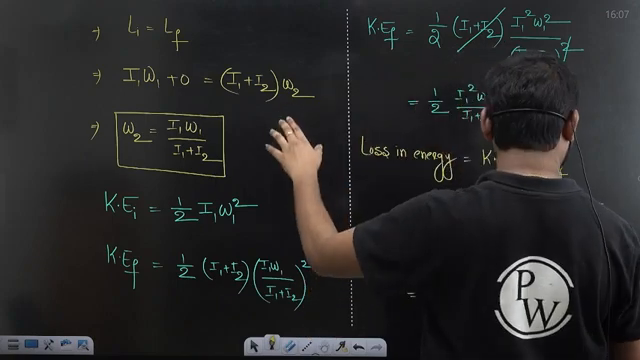 ⇒ L₁ = L_f
⇒ I₁ω₁ + 0 = (I₁+I₂) ω₂
⇒ ω₂ = I₁ω₁ / I₁+I₂
K·E_i = 1/2 I₁ω₁²
K·E_f = 1/2 (I₁+I₂) (I₁ω₁ / I₁+I₂)²
16:07
K·E_f = 1/2 (I₁+I₂) I₁²ω₁²
= 1/2 I₁²ω
Loss in energy = K·
=
P
W